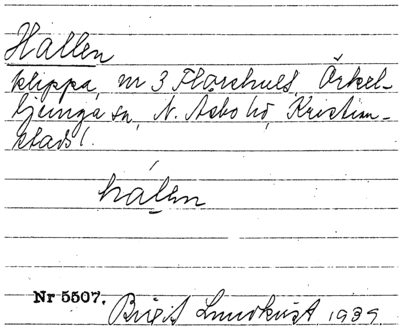 Hallen
klippa, nr 3 Flärchult, Örkel-
ljunga sn, N. Åsbo hd, Kristian-
stads l.
hálen
Nr 5507. Birgit Lundkvist 1939